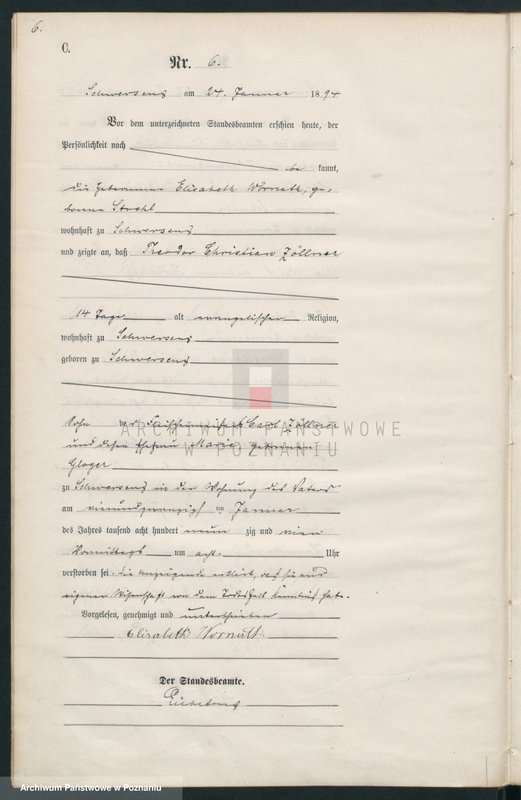 6.
C.
Nr. 6.
Schwersenz am 24. Januar 1894
Vor dem unterzeichneten Standesbeamten erschien heute, der
Persönlichkeit nach be kannt,
die Hebamme Elisabeth Wornath, ge-
borene Strehl
wohnhaft zu Schwersenz
und zeigte an, daß Theodor Christian Zöllner
14 Tage alt evangelischer Religion,
wohnhaft zu Schwersenz
geboren zu Schwersenz
Sohn des Carl Zöllner
und dessen Ehefrau Marie geborenen
Gloger
ARCHIWUM PAŃSTWOWE
W POZNANIU
zu Schwersenz in der Wohnung des Vaters
am vierundzwanzigsten Januar
des Jahres tausend acht hundert neun zig und vier
Vormittags um acht Uhr
verstorben sei. Die Anzeigende erklärt, daß sie aus
eigener Wissenschaft von dem Todesfall Kenntniß habe.
Vorgelesen, genehmigt und unterschrieben
Elisabeth Wornath.
Der Standesbeamte.
Archiwum Państwowe w Poznaniu